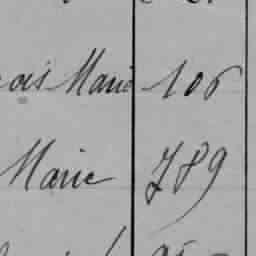 ois Marie 106
Marie 789